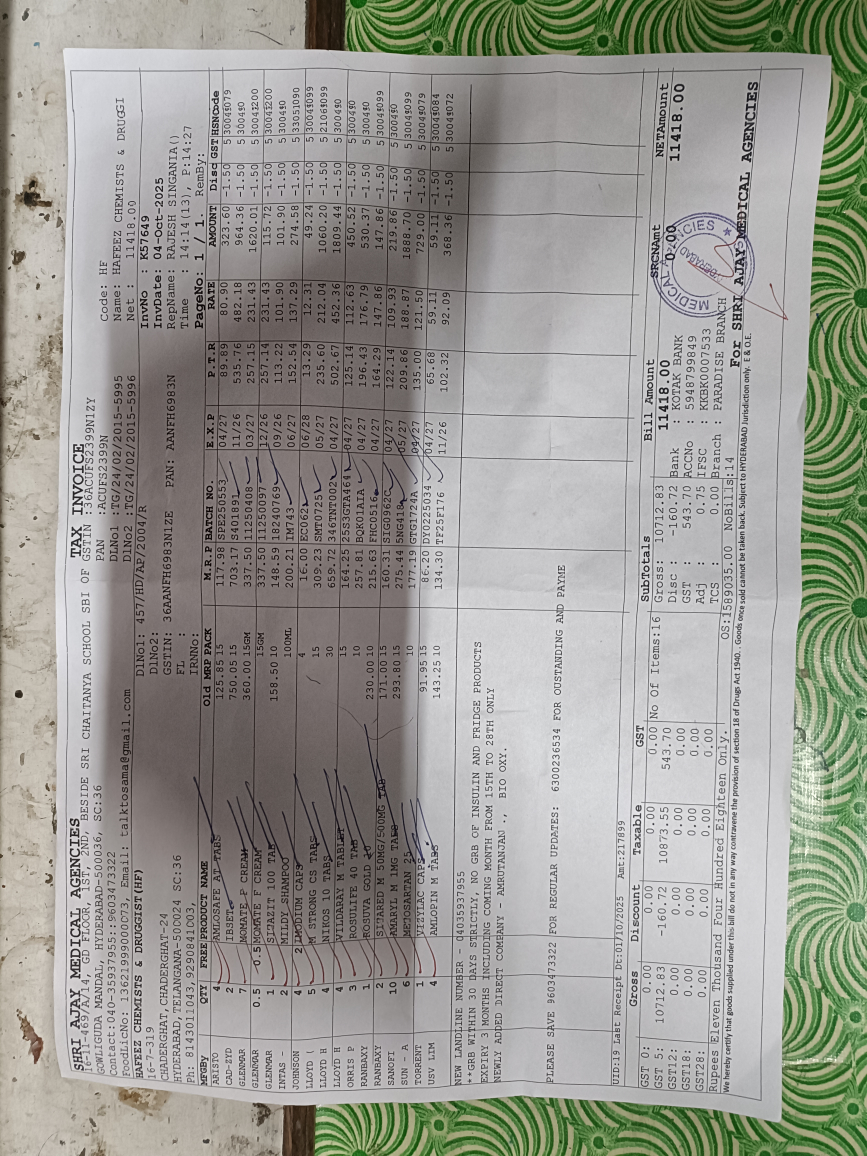 SHRI AJAY MEDICAL AGENCIES
TAX INVOICE
16-11-469/A/14, GD FLOOR, 1ST, 2ND, BESIDE SRI CHAITANYA SCHOOL SBI OF
GOWLIGUDA MANDAL, HYDERABAD-500036, SC:36
Contact:040-35937955::9603473322
FoodLicNo: 13621999000073, Email: talktosama@gmail.com
GSTIN :36ACUFS2399N1ZY
PAN :ACUFS2399N
DLNo1 :TG/24/02/2015-5995
DlNo2 :TG/24/02/2015-5996
Code: HF
Name: HAFEEZ CHEMISTS & DRUGGI
Net : 11418.00
HAFEEZ CHEMISTS & DRUGGIST(HF)
16-7-319
CHADERGHAT, CHADERGHAT-24
HYDERABAD, TELANGANA-500024 SC:36
Ph: 8143011043,9290841003,
DlNo1: 457/HD/AP/2004/R
DlNo2:
GSTIN: 36AANFH6983N1ZE PAN: AANFH6983N
FL :
IRNNo:
InvNo : K57649
InvDate: 04-Oct-2025
RepName: RAJESH SINGANIA()
Time : 14:14(13), P:14:27
PageNo: 1 / 1. RemBy:
MFGBy QTY FREE PRODUCT NAME Old MRP PACK M.R.P BATCH NO. E.X.P P.T.R RATE AMOUNT Disc GST HSNCode
ARISTO 4 AMLOSAFE AT TABS 125.85 15 117.98 SPE250553 04/27 89.89 80.90 323.60 -1.50 5 30049079
CAD-ZYD 2 IBSET 750.05 15 703.17 S401891 11/26 535.76 482.18 964.36 -1.50 5 300490
GLENMAR 7 MOMATE F CREAM 360.00 15GM 337.50 11250408 03/27 257.15 231.43 1620.01 -1.50 5 30043200
GLENMAR 0.5 0.5 MOMATE F CREAM 15GM 337.50 11250097 12/26 257.14 231.43 115.72 -1.50 5 30043200
GLENMAR 1 SITAZIT 100 TAB 158.50 10 148.59 18240769 09/26 113.22 101.90 101.90 -1.50 5 300490
INTAS - 2 MILDY SHAMPOO 100ML 200.21 IM743 06/27 152.54 137.29 274.58 -1.50 5 33051090
JOHNSON 4 2 IMODIUM CAPS 4 16.00 EC062 06/28 13.29 12.31 49.24 -1.50 5 30049099
LLOYD ( 5 M STRONG CS TABS 15 309.23 SMT0725 05/27 235.60 212.04 1060.20 -1.50 5 21069099
LLOYD H 4 NIKOS 10 TABS 30 659.72 346TNT002 04/27 502.67 452.36 1809.44 -1.50 5 300490
LLOYD H 4 VILDARAY M TABLET 15 164.25 25S3GTA464 04/27 125.14 112.63 450.52 -1.50 5 300490
ORRIS P 3 ROSULIFE 40 TAB 10 257.81 BQK01A1A 04/27 196.43 176.79 530.37 -1.50 5 300490
RANBAXY 1 ROSUVA GOLD 10 230.00 10 215.63 FHC0516 04/27 164.29 147.86 147.86 -1.50 5 30049099
RANBAXY 2 SITARED M 50MG/500MG TAB 171.00 15 160.31 SIG0962C 04/27 122.14 109.93 219.86 -1.50 5 300490
SANOFI 10 AMARYL M 1MG TABS 293.80 15 275.44 5NG418 05/27 209.86 188.87 1888.70 -1.50 5 30049099
SUN - A 6 25 10 177.19 GTG1724A 04/27 135.00 121.50 729.00 -1.50 5 30049079
TORRENT 1 VIZYLAC CAPS 91.95 15 86.20 DY0225034 04/27 65.68 59.11 59.11 -1.50 5 30049084
USV LIM 4 AMLOPIN M TABS 143.25 10 134.30 TF25F176 11/26 102.32 92.09 368.36 -1.50 5 30049072
NEW LANDLINE NUMBER - 04035937955
**GRB WITHIN 30 DAYS STRICTLY, NO GRB OF INSULIN AND FRIDGE PRODUCTS
EXPIRY 3 MONTHS INCLUDING COMING MONTH FROM 15TH TO 28TH ONLY
NEWLY ADDED DIRECT COMPANY - AMRUTANJAN ., BIO OXY.
PLEASE SAVE 9603473322 FOR REGULAR UPDATES: 6300236534 FOR OUSTANDING AND PAYME
UID:19 Last Receipt Dt:01/10/2025 Amt:217899
Gross Discount Taxable GST
GST 0: 0.00 0.00 0.00 0.00
GST 5: 10712.83 -160.72 10873.55 543.70
GST12: 0.00 0.00 0.00 0.00
GST18: 0.00 0.00 0.00 0.00
GST28: 0.00 0.00 0.00 0.00
No Of Items:16
SubTotals
Gross: 10712.83
Disc : -160.72
GST : 543.70
Adj : 0.75
TCS : 0.00
Bill Amount SRCNAmt NETAmount
11418.00 0.00 11418.00
Bank : KOTAK BANK
ACCNo : 5948799849
IFSC : KKBK0007533
Branch : PARADISE BRANCH
Rupees Eleven Thousand Four Hundred Eighteen Only.
OS:1589035.00 NoBills:14
For SHRI AJAY MEDICAL AGENCIES
We hereby certify that goods supplied under this bill do not in any way contravene the provision of section 18 of Drugs Act 1940.. Goods once sold cannot be taken back. Subject to HYDERABAD Jurisdiction only. E & O.E.
MEDICAL AGENCIES